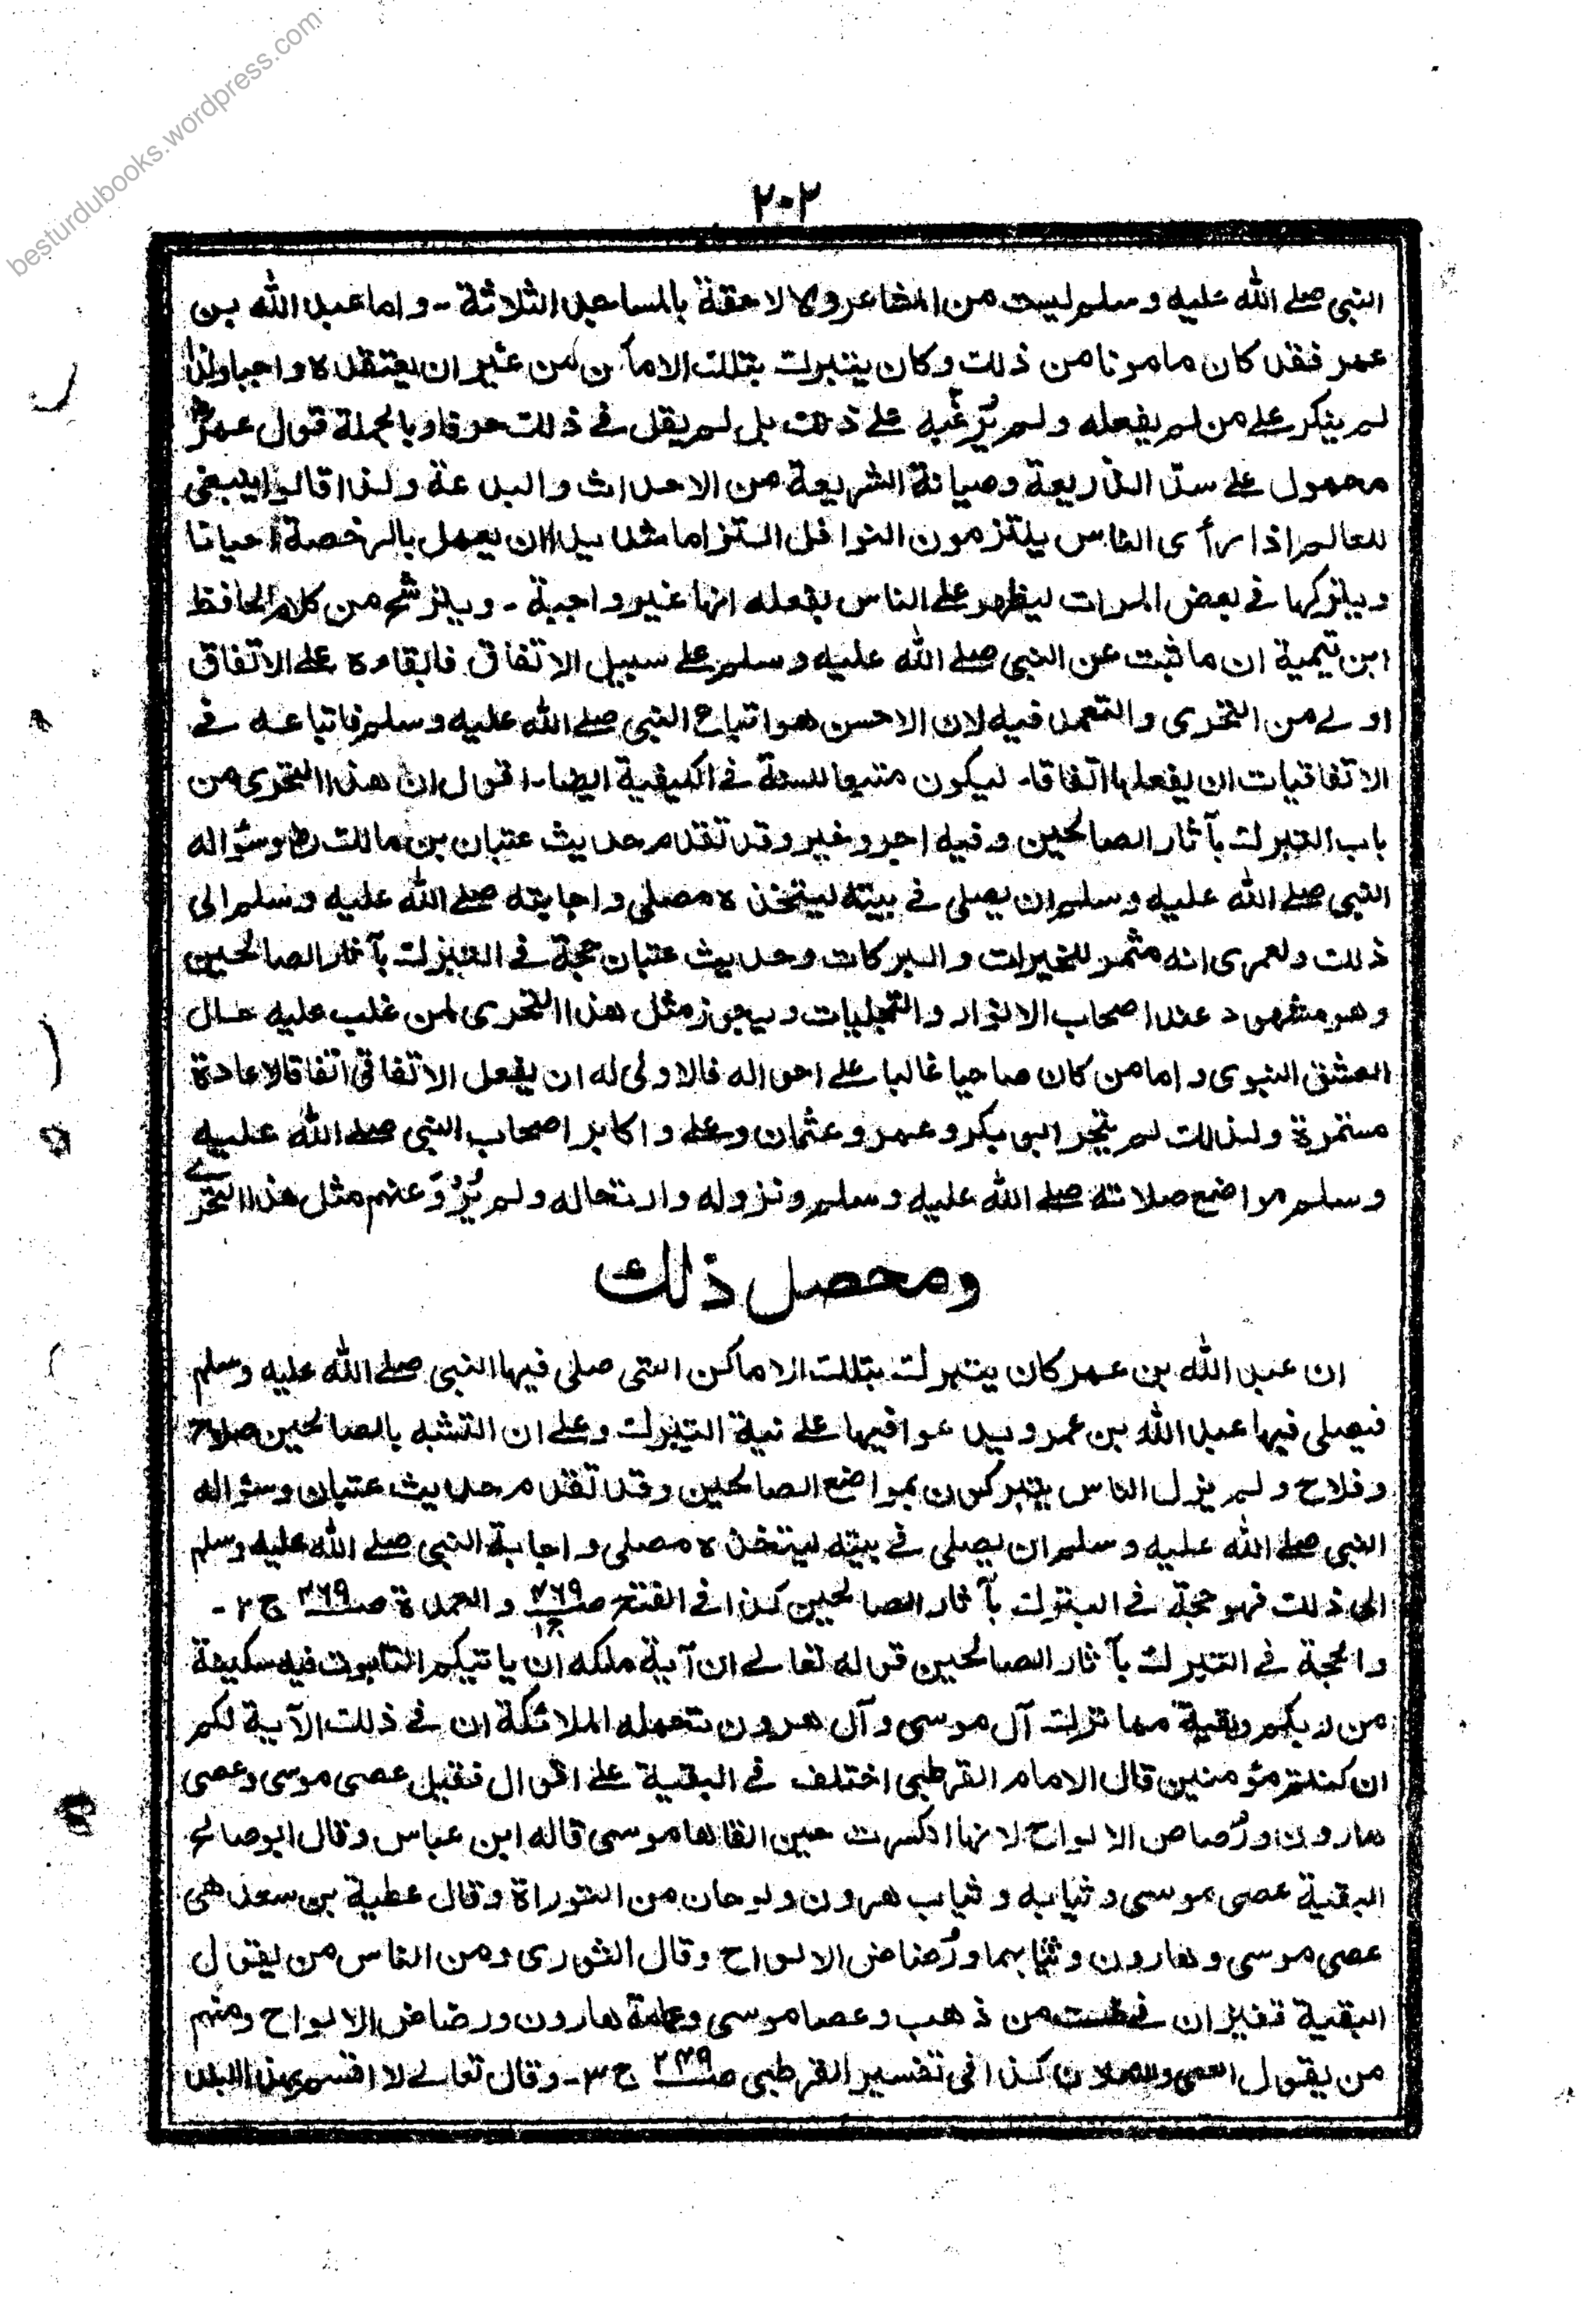 besturdubooks.wordpress.com
٢٠٢
النبی صلے الله علیه وسلم لیست من المشاعر ولا لاحقة بالمساجد الثلاثة - واما عبد الله بن
عمر فقد کان مامونا من ذلك وکان یتبرك بتلك الاماکن من غیر ان یعتقده واجبا ولذا
لم ینکر علے من لم یفعله ولم یُرَغِّبه علے ذلك بل لم یقل فے ذلك حرفا وبالجملة قول عمرؓ
محمول علے سد الذریعة وصیانة الشریعة من الاحداث والبدعة ولذا قالوا ینبغی
للعالم اذا رأی الناس یلتزمون النوافل التزاما شدیدا ان یعمل بالرخصة احیانا
ویترکها فے بعض المرات لیظهر علے الناس بفعله انها غیر واجبة - ویترشح من کلام الحافظ
ابن تیمیة ان ما ثبت عن النبی صلے الله علیه وسلم علے سبیل الاتفاق فابقاءه علے الاتفاق
اولے من التحری والتعمد فیه لان الاحسن هو اتباع النبی صلے الله علیه وسلم فاتباعه فے
الاتفاقیات ان یفعلها اتفاقا۔ لیکون متبعا للسنة فے الکیفیة ایضا۔ اقول ان هذا التحری من
باب التبرك بآثار الصالحین وفیه اجر وخیر وقد تقدم حدیث عتبان بن مالكؓ وسؤاله
النبی صلے الله علیه وسلم ان یصلی فے بیته لیتخذه مصلی واجابته صلے الله علیه وسلم الی
ذلك ولعمری انه مثمر للخیرات والبرکات وحدیث عتبان حجة فے التبرك بآثار الصالحین
وهو مشهود عند اصحاب الانوار والتجلیات ویجوز مثل هذا التحری لمن غلب علیه حال
العشق النبوی واما من کان صاحیا غالبا علے احواله فالاولی له ان یفعل الاتفاقی اتفاقا لا عادة
مستمرة ولذلك لم یتحر ابی بکر وعمر وعثمان وعلے واکابر اصحاب النبی صلے الله علیه
وسلم مواضع صلاته صلے الله علیه وسلم ونزوله وارتحاله ولم یُرْوَ عنهم مثل هذا التحرے
ومحصل ذلك
ان عبد الله بن عمر کان یتبرك بتلك الاماکن التی صلی فیها النبی صلے الله علیه وسلم
فیصلی فیها عبد الله بن عمر ویدعوا فیها علے نیة التبرك وعلے ان التشبه بالصالحین صلاح
وفلاح ولم یزل الناس یتبرکون بمواضع الصالحین وقد تقدم حدیث عتبان وسؤاله
النبی صلے الله علیه وسلم ان یصلی فے بیته لیتخذه مصلی واجابة النبی صلے الله علیه وسلم
الی ذلك فهو حجة فے التبرك بآثار الصالحین کذا فے الفتح ص٤٦٩ ج١ والعمدة ص٤٦٩ ج ٢ -
والحجة فے التبرك بآثار الصالحین قوله تعالے ان آیة ملکه ان یاتیکم التابوت فیه سکینة
من ربکم وبقیة مما ترك آل موسی وآل هرون تحمله الملائکة ان فے ذلك لآیة لکم
ان کنتم مؤمنین قال الامام القرطبی اختلف فے البقیة علے اقوال فقیل عصی موسی وعصی
هارون ورُضاض الالواح لانها انکسرت حین القاها موسی قاله ابن عباس وقال ابو صالح
البقیة عصی موسی وثیابه وثیاب هرون ولوحان من التوراة وقال عطیة بن سعد هی
عصی موسی وهارون وثیابهما ورُضاض الالواح وقال الثوری ومن الناس من یقول
البقیة قفیزان فے طست من ذهب وعصا موسی وعمامة هارون ورضاض الالواح ومنهم
من یقول العصی والنعلان کذا فی تفسیر القرطبی ص٢٤٩ ج ٣ - وقال تعالے لا اقسم بهذا البلد